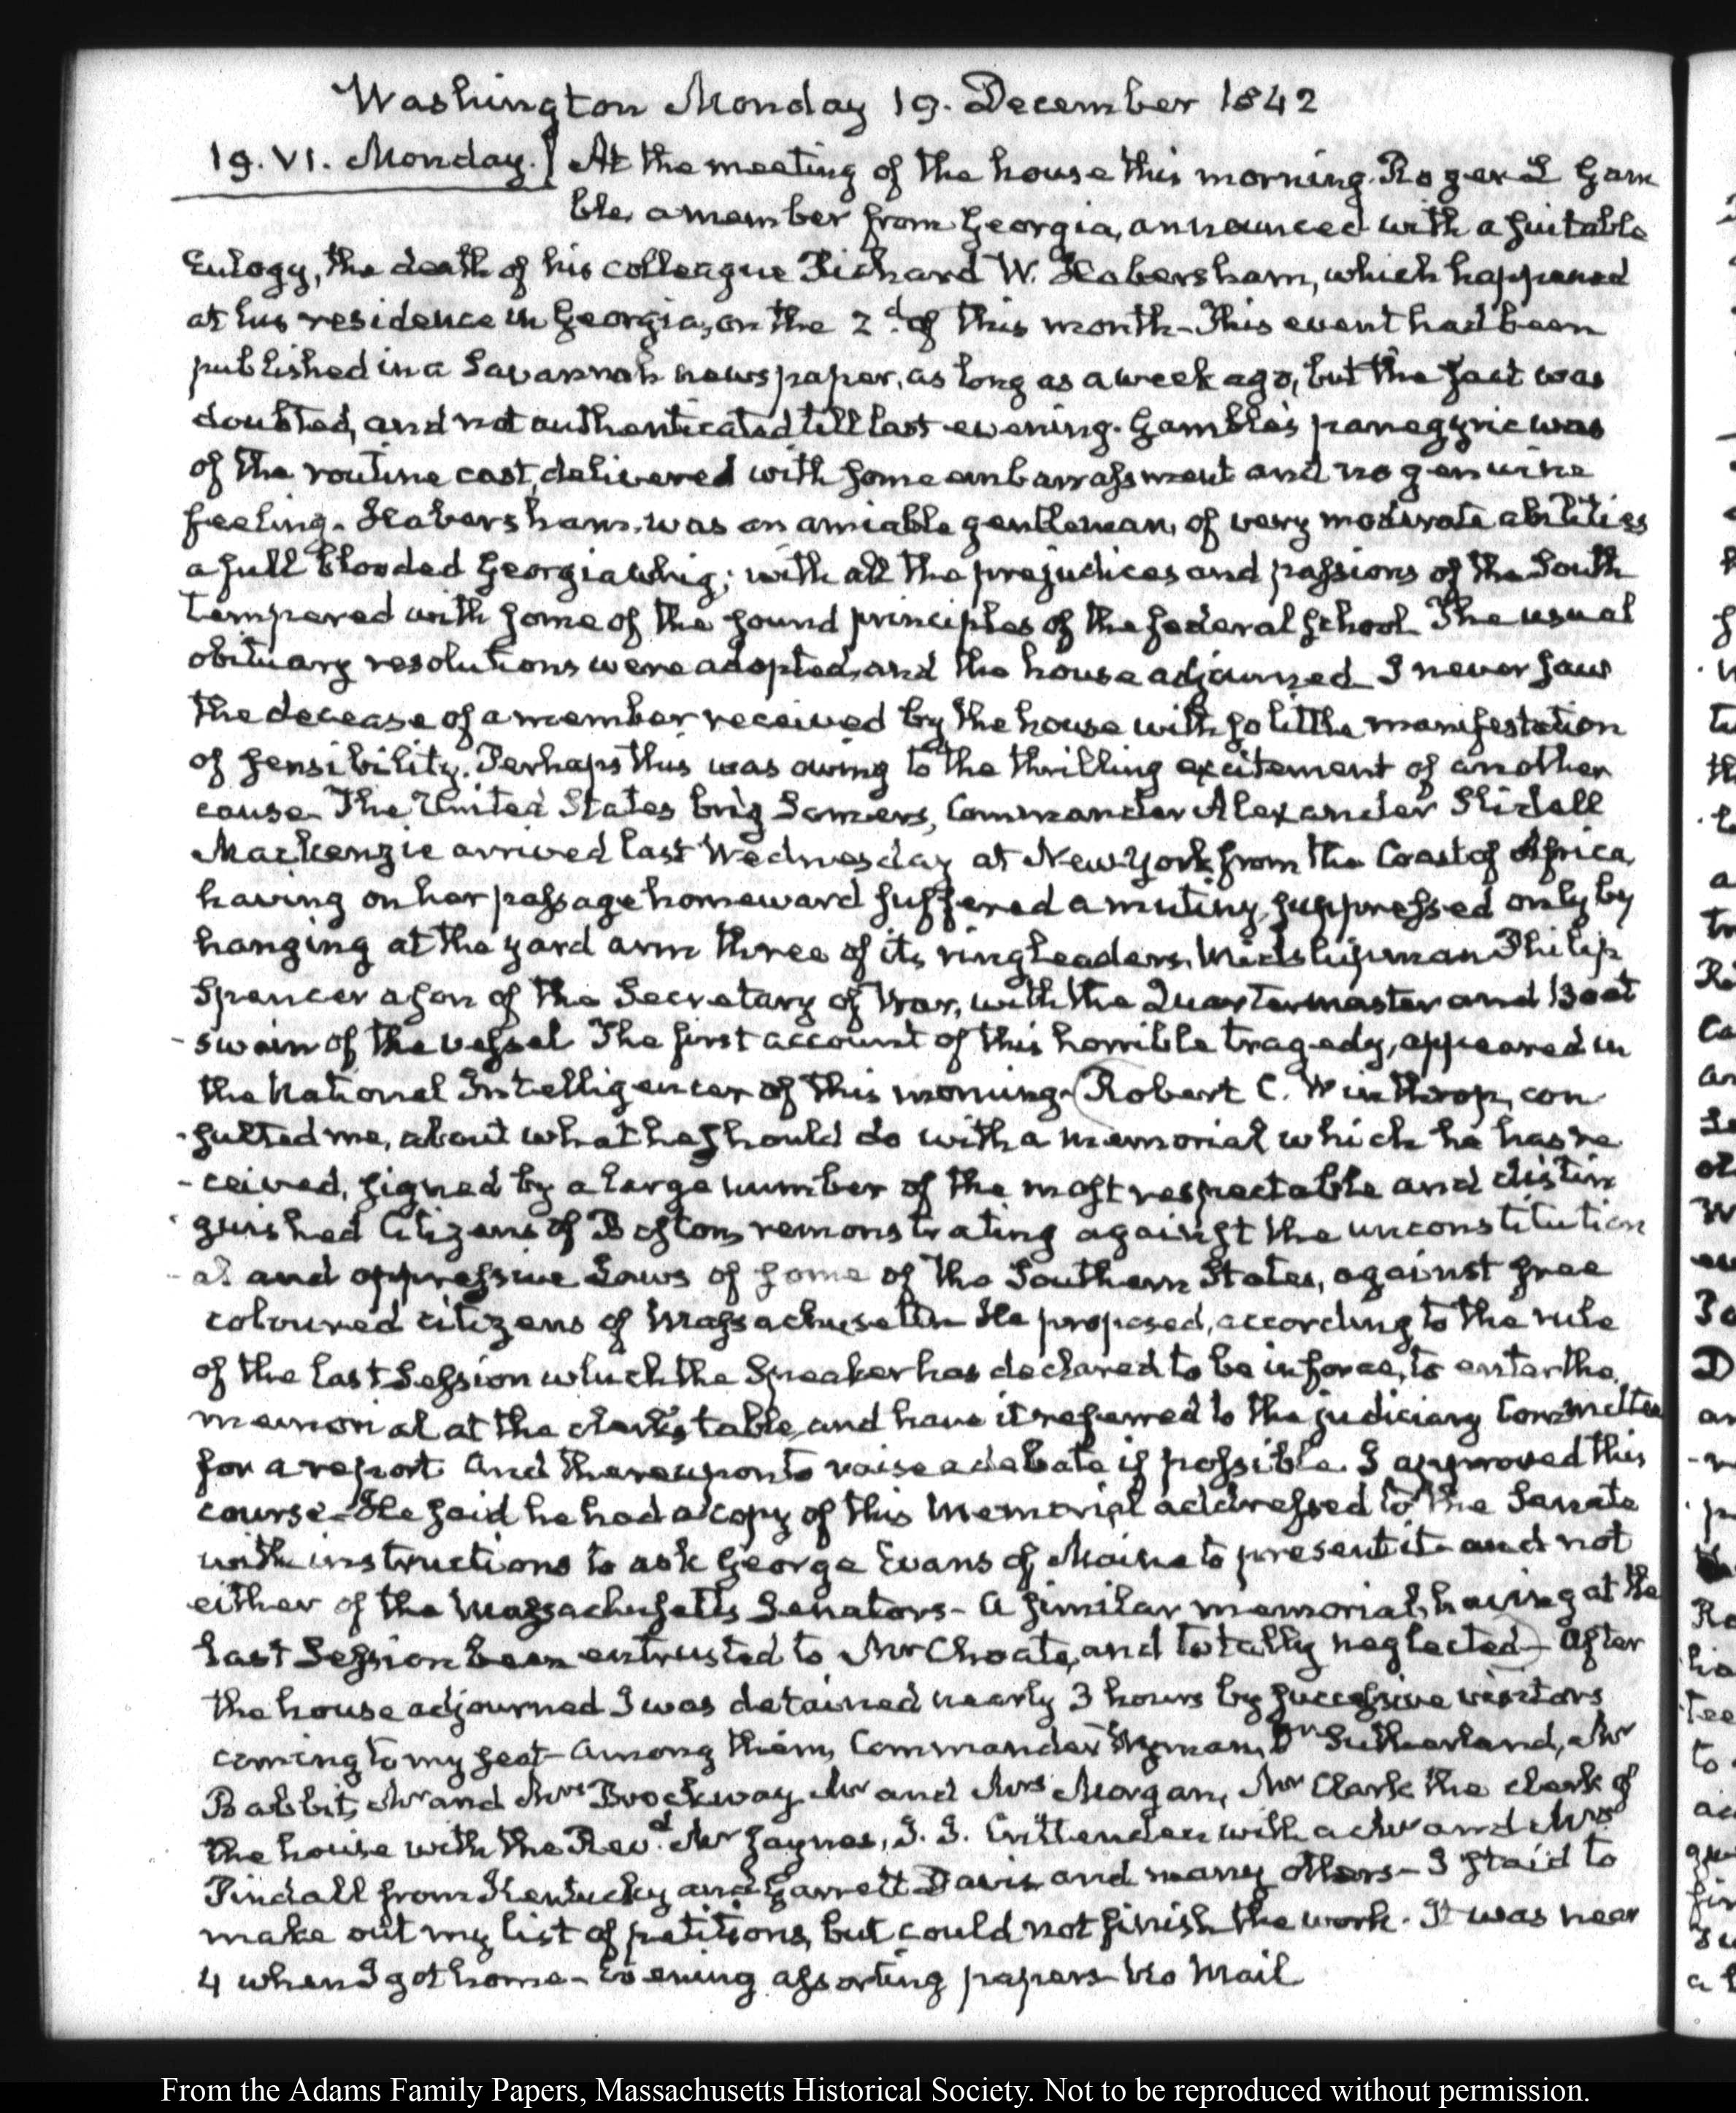 Washington Monday 19. December 1842
19. VI. Monday.} At the meeting of the house this morning. Roger L Gam
ble, a member from Georgia, announced with a suitable
Eulogy, the death of his colleague Richard W. Habersham, which happened
at his residence in Georgia, on the 2d. of this month- This event had been
published in a Savannah newspaper, as long as a week ago, but the fact was
doubted, and not authenticated till last evening. Gamble's panegyric was
of the routine cast, delivered with some embarrassment and no genuine
feeling. Habersham, was an amiable gentleman, of very moderate abilities
a full blooded Georgia whig; with all the prejudices and passions of the South
tempered with some of the sound principles of the federal school. The usual
obituary resolutions were adopted, and the house adjourned. I never saw
the decease of a member received by the house with so little manifestation
of sensibility. Perhaps this was owing to the thrilling excitement of another
cause. The United States brig Somers, Commander Alexander Slidell
Mackenzie arrived last Wednesday at New York from the Coast of Africa,
having on her passage homeward suffered a mutiny, suppressed only by
hanging at the yard arm three of its ringleaders, Midshipman Philip
Spencer a son of the Secretary of War, with the Quartermaster and Boat
-swain of the vessel. The first account of this horrible tragedy, appeared in
the National Intelligencer of this morning- (Robert C. Winthrop, con
-sulted me, about what he should do with a memorial which he has re
-ceived, signed by a large number of the most respectable and distin
-guished Citizens of Boston, remonstrating against the unconstitution
-al and oppressive Laws of some of the Southern States, against free
coloured citizens of Massachusetts- He proposed, according to the rule
of the last Session which the Speaker has declared to be in force, to enter the
memorial at the clerk's table, and have it referred to the judiciary Committee
for a report and thereupon to raise a debate if possible. I approved this
course- He said he had a copy of this Memorial addressed to the Senate
with instructions to ask George Evans of Maine to present it- and not
either of the Massachusetts Senators- a similar memorial, having at the
last Session been entrusted to Mr Choate, and totally neglected-) After
the house adjourned I was detained nearly 3 hours by successive visitors
coming to my seat- among them, Commander Wyman, Dr. Sutherland, Mr
Babbit, Mr and Mrs Brockway Mr and Mrs Morgan, Mr Clark the clerk of
the house with the Revd. Mr Jaynes, J. J. Crittenden with a Mr and Mrs
Tindall from Kentucky and Garrett Davis and many others- I staid to
make out my list of petitions, but could not finish the work. It was near
4 when I got home- Evening assorting papers- No Mail
From the Adams Family Papers, Massachusetts Historical Society. Not to be reproduced without permission.